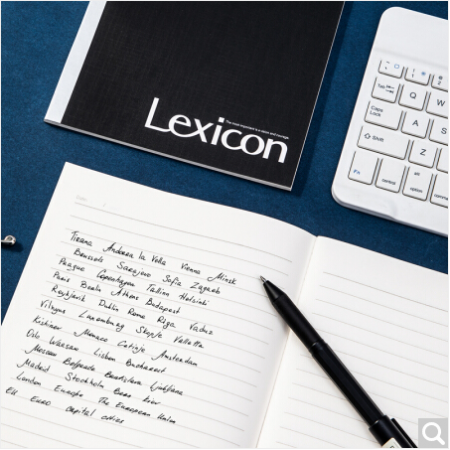 Lexicon
Tab
Q
W
Caps Lock
A
S
Shift
Z
Fn
control
option
alt
Tirana Andorra la Vella Vienna Minsk
Brussels Sarajevo Sofia Zagreb
Prague Copenhagen Tallinn Helsinki
Paris Berlin Athens Budapest
Reykjavik Dublin Rome Riga Vaduz
Vilnyus Luxembourg Skopje Valletta
Kishinev Monaco Amsterdam
Oslo Warsaw Lisbon Bucharest
Moscow Belgrade Bratislava Ljubljana
Madrid Stockholm Bern Kiev
London Europe The European Union
EU Euro capital cities